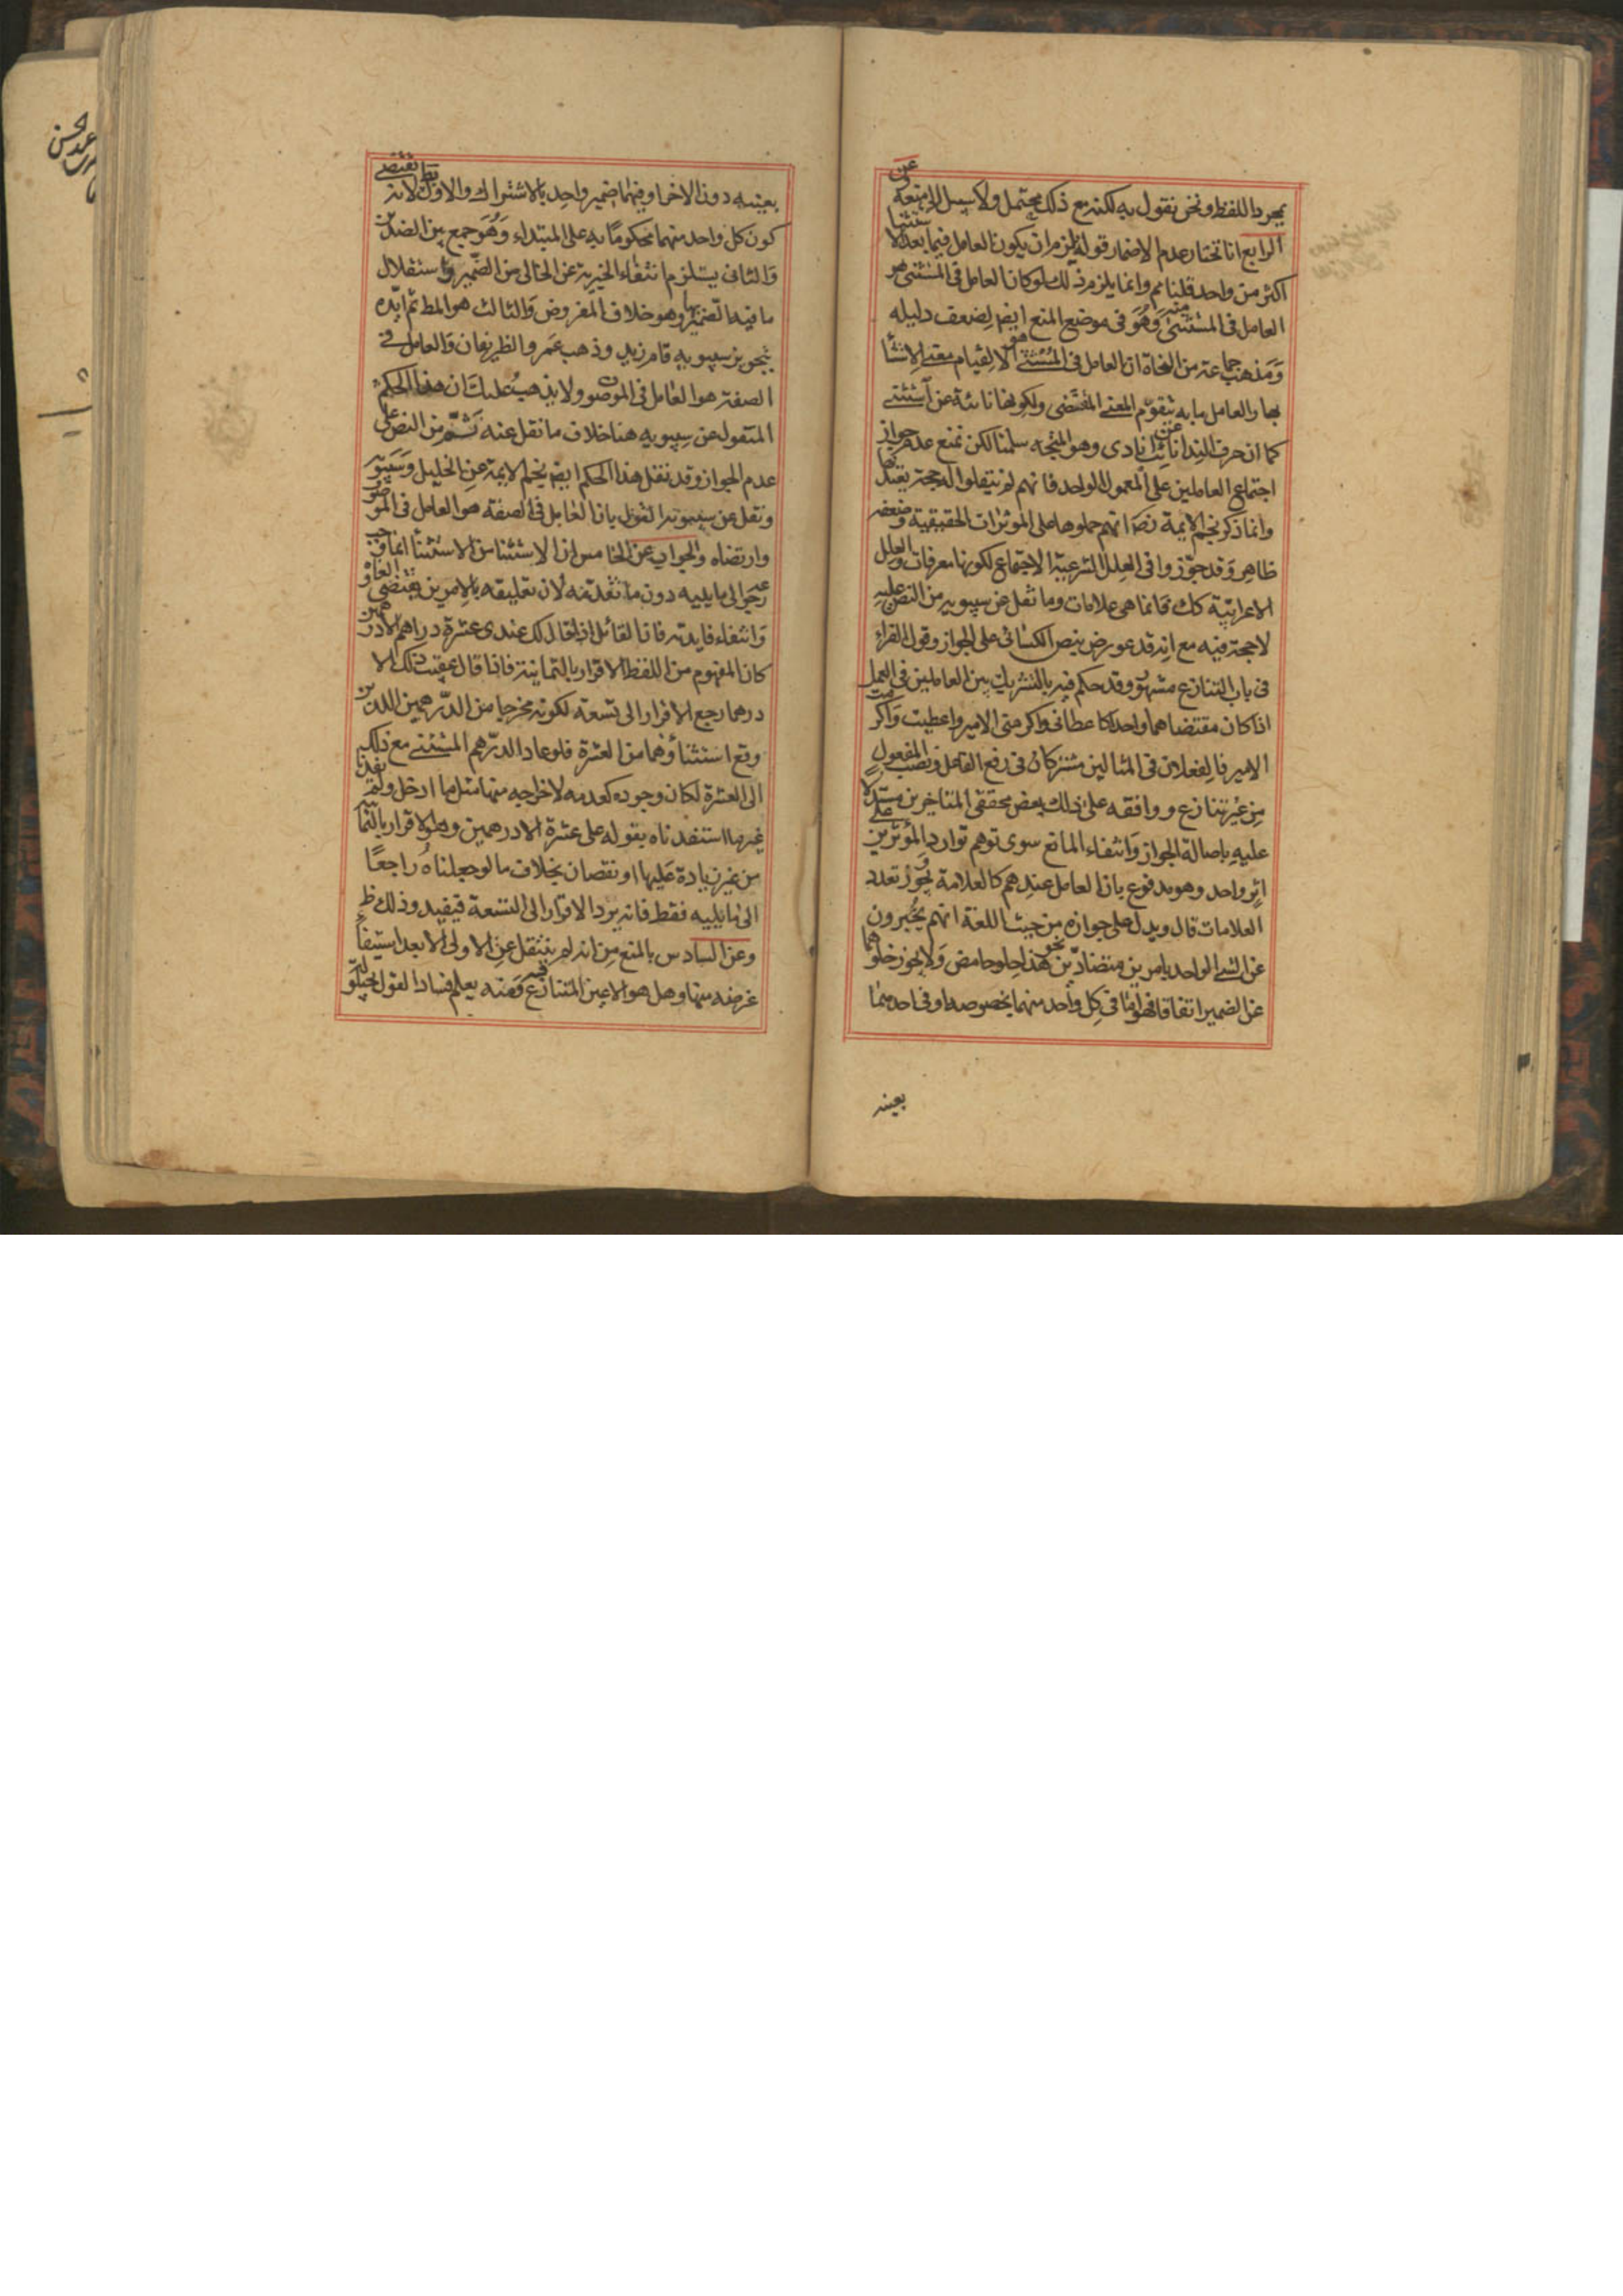 بمجرد اللفظ ونحن نقول به لكنه مع ذلك محتمل ولا سبيل الى منعه وعن
الرابع انا نختار عدم الاضمار قوله يلزم ان يكون العامل فيما بعد الاستثناء
اكثر من واحد قلنا نم وانما يلزم ذلك لو كان العامل فى المستثنى هو
العامل فى المستثنى منه وهو فى موضع المنع ايض لضعف دليله
ومذهب جماعة من النحاة ان العامل فى المستثنى هو الا لقيام معنى الاستثنا
بها والعامل ما به يتقوم المعنى المقتضى ولكونها نائبة عن استثنى
كما ان حرف الندا نائب عن انادى وهو المتجه سلمنا لكن نمنع عدم جواز
اجتماع العاملين على المعمول الواحد فانهم لم ينقلوا له حجة يعتد بها
وانما ذكر نجم الايمة رض انهم حملوها على الموثرات الحقيقية وضعفه
ظاهر وقد جوزوا فى العلل الشرعية الاجتماع لكونها معرفات والعلل
الاعرابية كك فانما هى علامات وما نقل عن سيبويه من النص عليه
لا حجة فيه مع انه قد عورض بنص الكسائى على الجواز وقول الفراء
فى باب التنازع مشهور وقد حكم فيه بالتشريك بين العاملين فى العمل
اذا كان مقتضاهما واحدا كاعطانى واكرمنى الامير واعطيت واكرمت
الامير فالفعلان فى المثالين مشتركان فى رفع الفاعل ونصب المفعول
من غير تنازع ووافقه على ذلك بعض محققى المتاخرين مستدلا
عليه باصالة الجواز وانتفاء المانع سوى توهم توارد المؤثرين على
اثر واحد وهو مدفوع بان العامل عندهم كالعلامة ويجوز تعدد
العلامات قال ويدل على جوازه من حيث اللغة انهم يخبرون
عن الشى الواحد بامرين متضادين نحو هذا حلو حامض ولا يجوز خلوهما
عن الضمير اتفاقا فهو اما فى كل واحد منهما بخصوصه او فى احدهما
بعينه
بعينه دون الاخر او فيهما ضمير واحد بالاشتراك والاول بط لانه يقتضى
كون كل واحد منهما محكوما به على المبتداء وهو جمع بين الضدين
والثانى يستلزم انتفاء الخبرية عن الخالى من الضمير واستقلال
ما فيه الضمير بها وهو خلاف المفروض والثالث هو المط ثم ايده
بتجويز سيبويه قام زيد وذهب عمرو الظريفان والعامل فى
الصفة هو العامل فى الموصوف ولا يذهب عليك ان هذا الحكم
المنقول عن سيبويه هنا خلاف ما نقل عنه ثم من النص على
عدم الجواز وقد نقل هذا الحكم ايض نجم الايمة عن الخليل وسيبويه
ونقل عن سيبويه القول بان العامل فى الصفة هو العامل فى الموصوف
وارتضاه والجواب عن الخامس ان الاستثنا من الاستثنا انما وجب
رجوعه الى ما يليه دون ما تقدمه لان تعليقه بالامرين يقتضى الغاؤه
وانتفاء فايدته فان القائل اذا قال لك عندى عشرة دراهم الا درهمين
كان المفهوم من اللفظ الاقرار بالثمانية فاذا قال عقيب ذلك الا
درهما رجع الاقرار الى تسعة لكونه مخرجا من الدرهمين اللذين
وقع استثناؤهما من العشرة فلو عاد الدرهم المستثنى مع ذلك
الى العشرة لكان وجوده كعدمه لاخراجه منها مثل ما ادخل ولم يفدنا
غير ما استفدناه بقوله على عشرة الا درهمين وهو الاقرار بالثمانية
من غير زيادة عليها او نقصان بخلاف ما لو جعلناه راجعا
الى ما يليه فقط فانه يرد الاقرار الى التسعة فيفيد وذلك ظ
وعن السادس بالمنع من انه لم ينتقل عن الاولى الا بعد استيفاء
غرضه منها وهل هو الا عين المتنازع فيه ومنه يعلم فساد القول